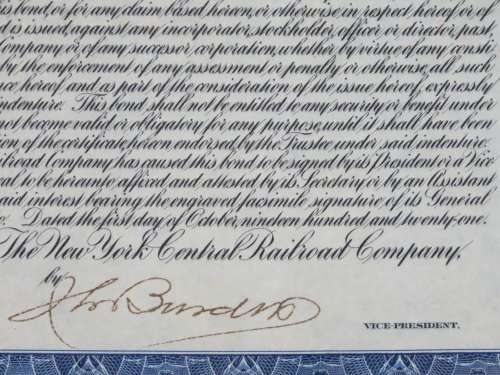 is bond, or for any claim based hereon, or otherwise in respect hereof or of
d is issued, against any incorporator, stockholder, officer or director, past,
Company or of any successor corporation, whether by virtue of any consti
by the enforcement of any assessment or penalty or otherwise, all such
ce hereof and as part of the consideration of the issue hereof, expressly
indenture. This bond shall not be entitled to any security or benefit under
not become valid or obligatory for any purpose, until it shall have been
on of the certificate, hereon endorsed, by the Trustee under said indenture.
ilroad Company has caused this bond to be signed by its President or a Vice
al to be hereunto affixed and attested by its Secretary or by an Assistant
aid interest bearing the engraved facsimile signature of its General
e. Dated the first day of October, nineteen hundred and twenty-one.
The New York Central Railroad Company,
by
VICE-PRESIDENT.